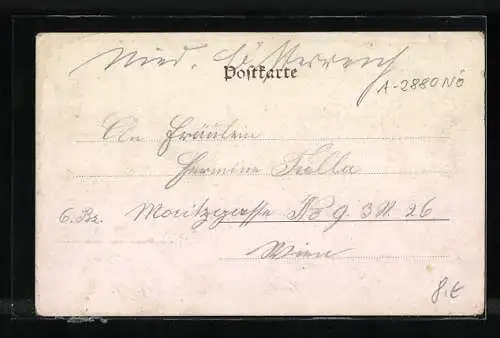 Nied. Österreich
Postkarte
A-2880 NÖ
An Fräulein
Hermine Fulla
6. Bz. Moritzgasse No 9 3 St. 26
Wien
8.-€